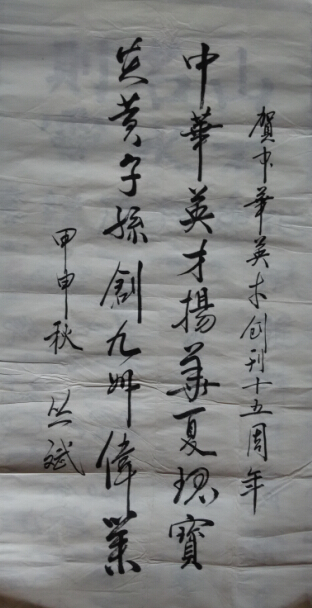 賀中華英才創刊十五周年
中華英才揚華夏瑰寶
炎黃子孫創九州偉業
甲申秋 丛斌